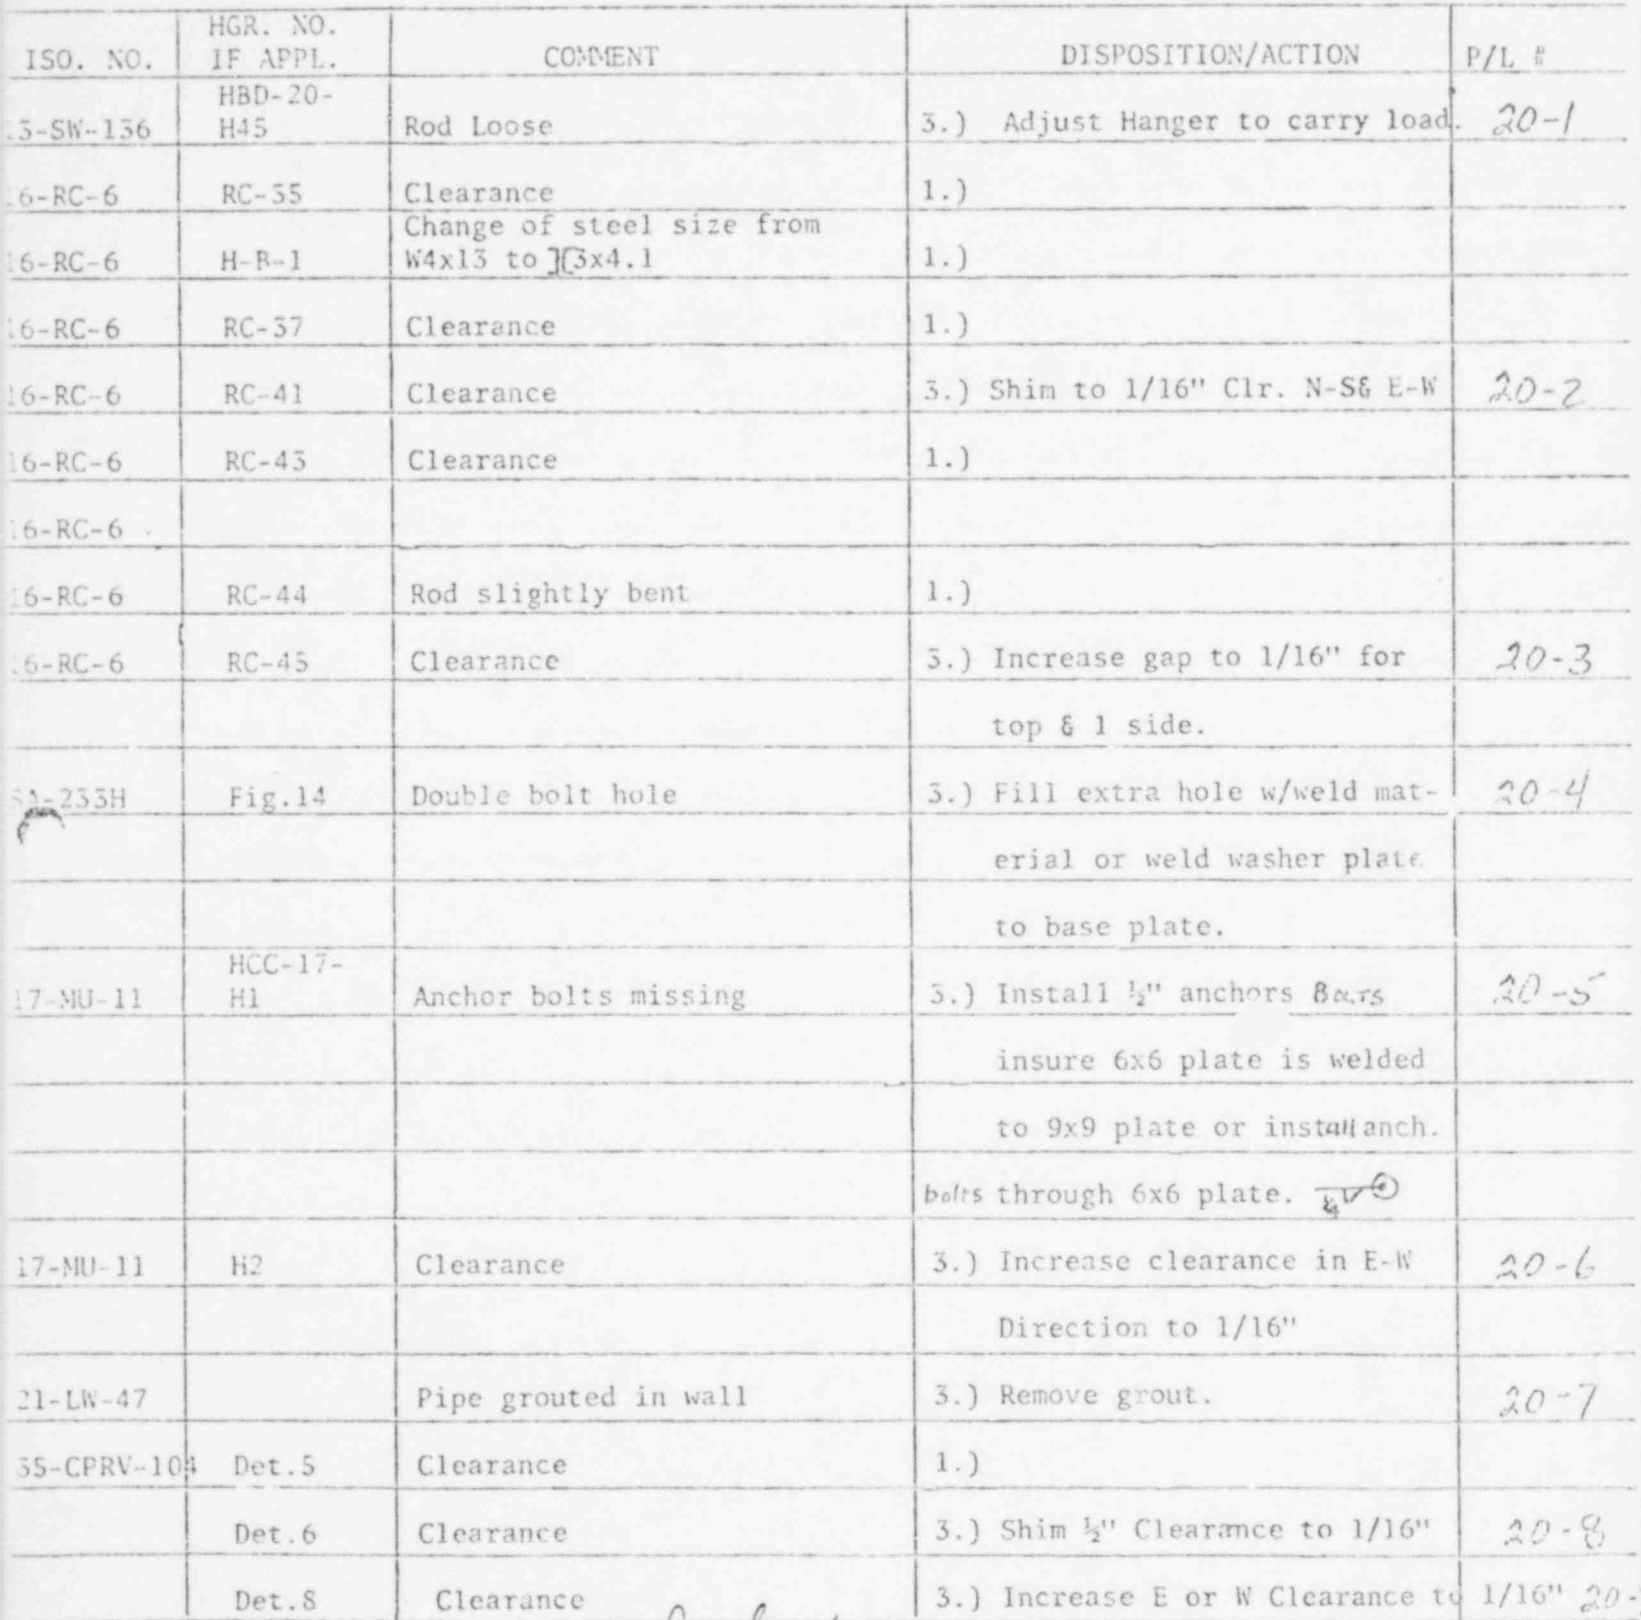 HGR. NO.
ISO. NO. IF APPL. COMMENT DISPOSITION/ACTION P/L #
HBD-20-
-SW-136 H45 Rod Loose 3.) Adjust Hanger to carry load. 20-1
6-RC-6 RC-35 Clearance 1.)
Change of steel size from
16-RC-6 H-B-1 W4x13 to ][3x4.1 1.)
16-RC-6 RC-37 Clearance 1.)
16-RC-6 RC-41 Clearance 3.) Shim to 1/16" Clr. N-S& E-W 20-2
16-RC-6 RC-43 Clearance 1.)
16-RC-6
16-RC-6 RC-44 Rod slightly bent 1.)
16-RC-6 RC-45 Clearance 3.) Increase gap to 1/16" for 20-3
top & 1 side.
-233H Fig.14 Double bolt hole 3.) Fill extra hole w/weld mat- 20-4
erial or weld washer plate
to base plate.
HCC-17-
17-MU-11 H1 Anchor bolts missing 3.) Install ½" anchors Bolts 20-5
insure 6x6 plate is welded
to 9x9 plate or install anch.
bolts through 6x6 plate.
17-MU-11 H2 Clearance 3.) Increase clearance in E-W 20-6
Direction to 1/16"
21-LW-47 Pipe grouted in wall 3.) Remove grout. 20-7
35-CPRV-104 Det.5 Clearance 1.)
Det.6 Clearance 3.) Shim ½" Clearance to 1/16" 20-8
Det.8 Clearance 3.) Increase E or W Clearance to 1/16" 20-